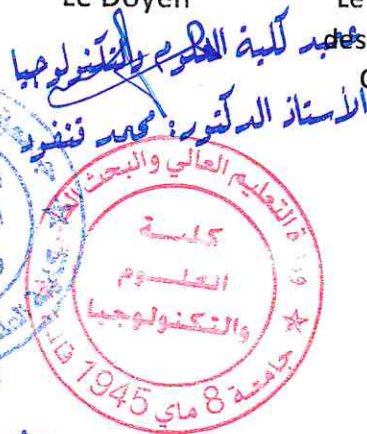 Le Doyen
Le
عميد كلية العلوم والتكنولوجيا
des
الأستاذ الدكتور: محمد
التعليم العالي والبحث
كليــة
العلــوم
والتكنولوجيا
جامعة 8 ماي 1945